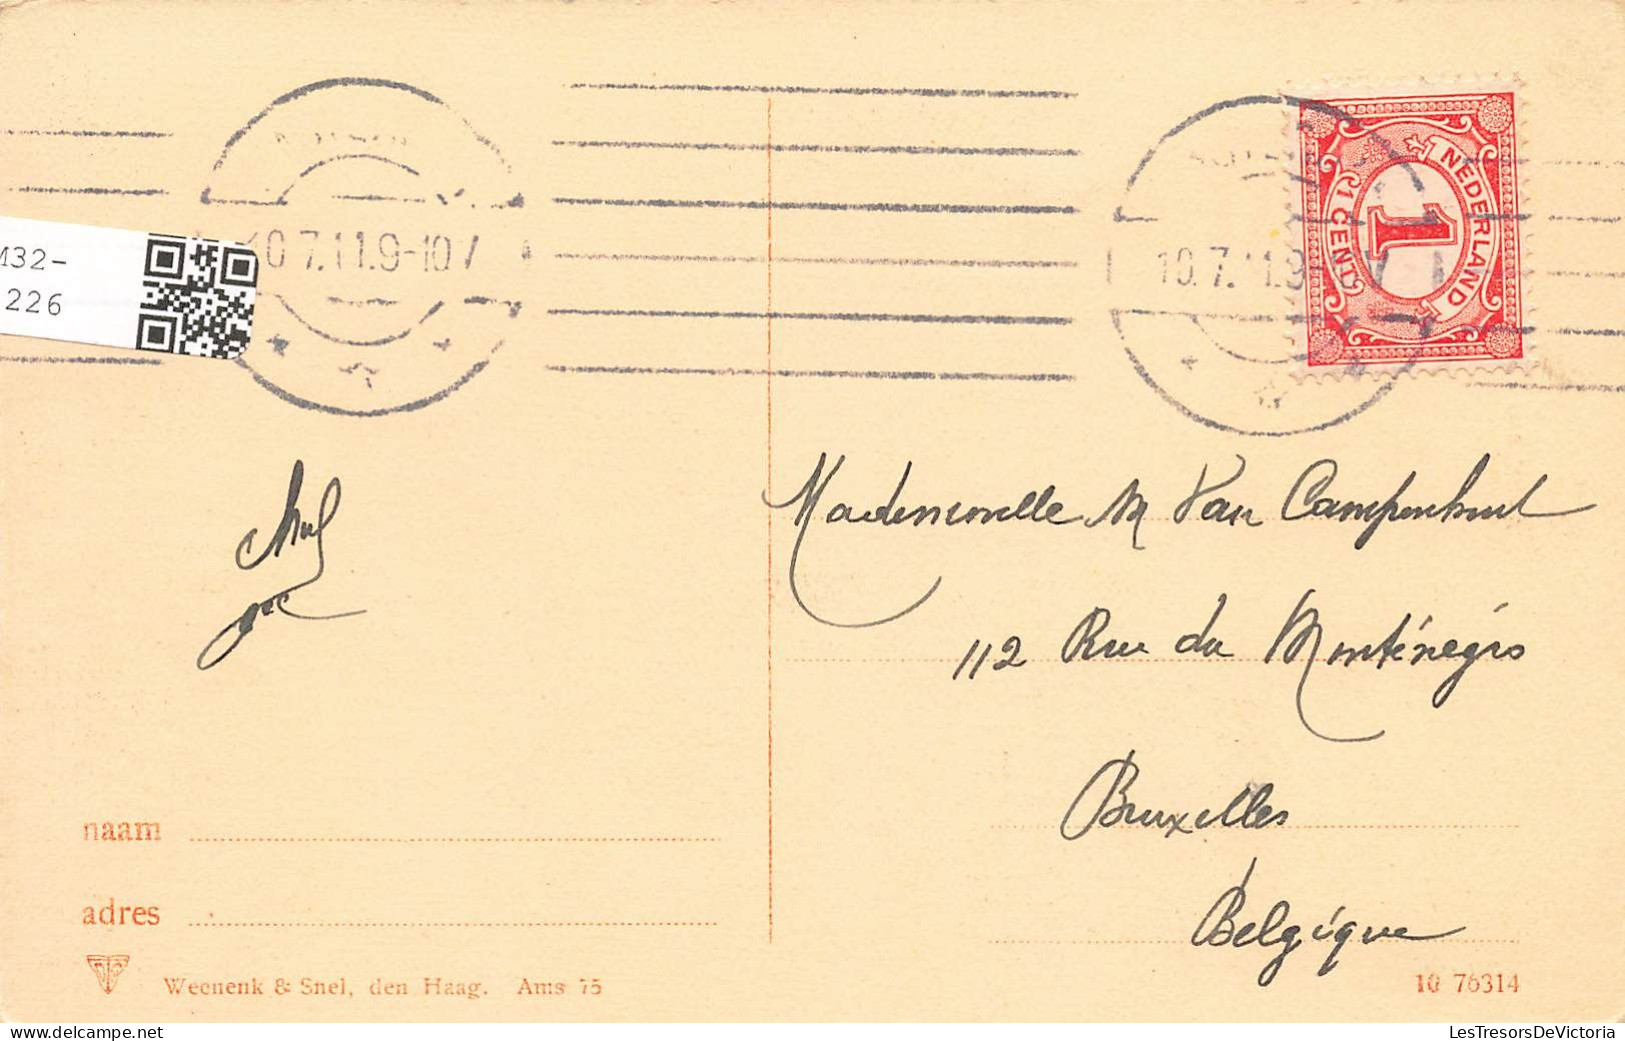 M32-
226
10.7.11.9-10 V
10.7.11.9
NEDERLAND
1 CENT
1
Mademoiselle M Van Campenhout
112 Rue du Monténégro
Bruxelles
Belgique
naam
adres
Weenenk & Snel, den Haag. Ams 75
10 76314
LesTresorsDeVictoria